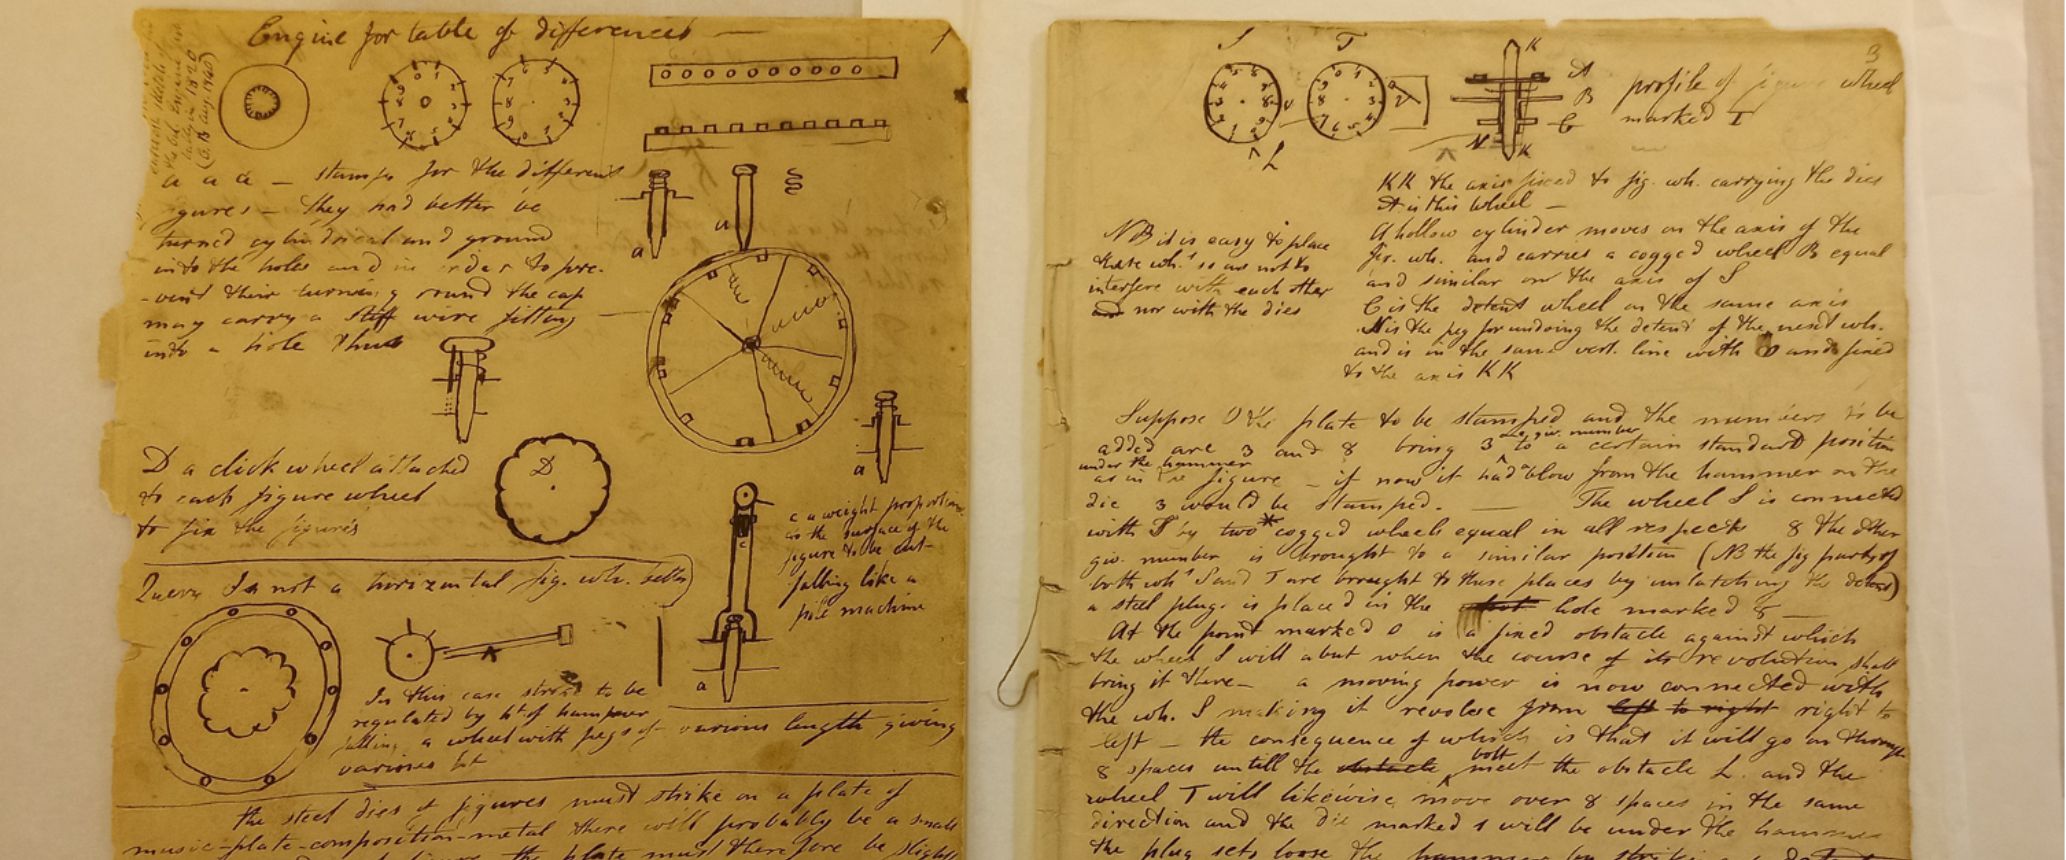 Engine for table of differences —
1
a a a — stamps for the different
figures — they had better be
turned cylindrical and ground
into the holes and in order to pre-
-vent their turning round the cap
may carry a stiff wire fitting
into a hole thus
a
a
a
D a click wheel attached
to each figure wheel
to fix the figures
D
c a weight proportion
as the surface of the
figure to be cut —
falling like a
pile machine
c
a
Query Is not a horizontal fig. wh. better
In this case stroke to be
regulated by ht of hammer
falling a wheel with pegs of various length giving
various ht
the steel dies of figures must strike on a plate of
music-plate-composition-metal there will probably be a small
the plate must therefore be slightly
3
S T
K
A
B
C
N
K
L
profile of figure wheel
marked I
KK the axis fixed to fig. wh. carrying the dies
A is this wheel —
A hollow cylinder moves on the axis of the
fig. wh. and carries a cogged wheel B equal
and similar on the axis of S
C is the detent wheel on the same axis
N is the peg for undoing the detent of the next wh.
and is in the same vert. line with 0 and fixed
to the axis KK
NB it is easy to place
these whs so as not to
interfere with each other
and nor with the dies
Suppose 0 the plate to be stamped and the numbers to be
added are 3 and 8 bring 3 one giv. number to a certain standard position
under the hammer
as in the figure — if now it had a blow from the hammer on the
die 3 would be stamped. — The wheel S is connected
with T by two* cogged wheels equal in all respects 8 the other
giv. number is brought to a similar position (NB the fig parts of
both whs S and T are brought to these places by unlatching the detent)
a steel plug is placed in the hole marked 8 —
At the point marked 0 is a fixed obstacle against which
the wheel S will abut when the course of its revolution shall
bring it there — a moving power is now connected with
the wh. S making it revolve from left to right right to
left — the consequence of which is that it will go on through
8 spaces untill the obstacle bolt meet the obstacle L. and the
wheel T will likewise move over 8 spaces in the same
direction and the die marked 1 will be under the hammer
the plug sets loose the hammer